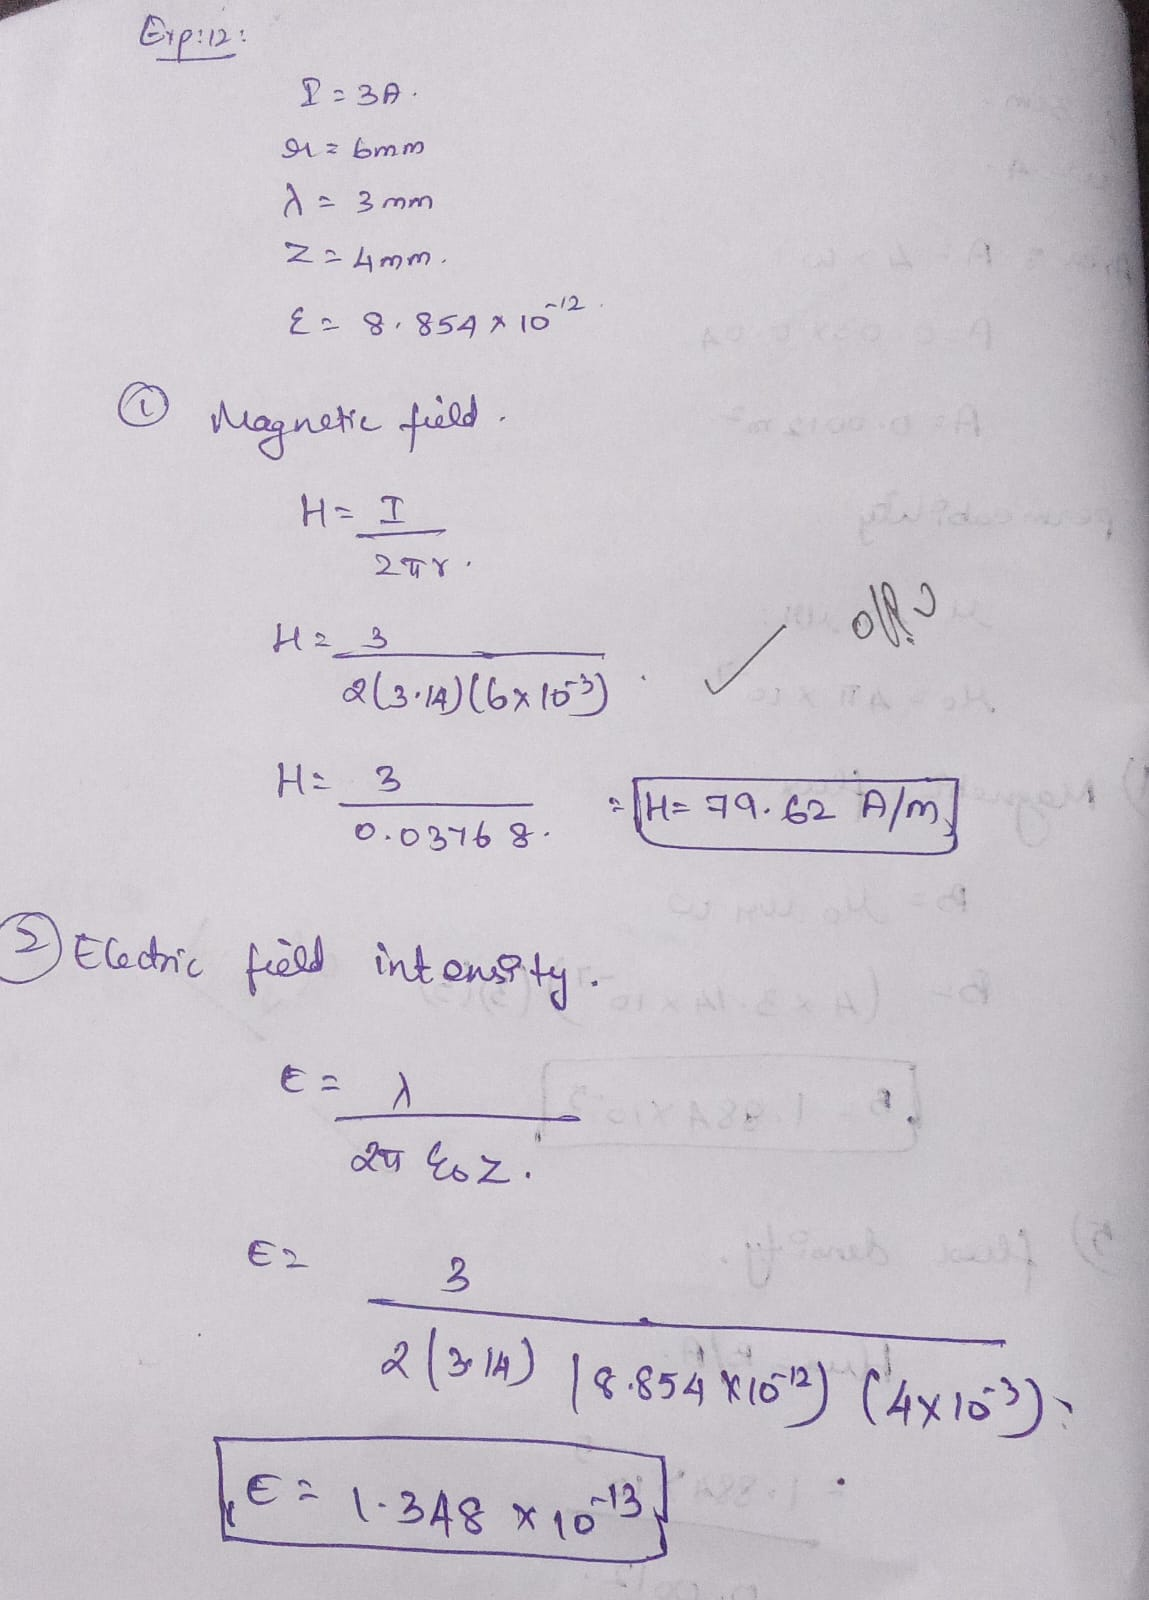 Exp:12:
I = 3A.
r = 6mm
λ = 3 mm
Z = 4mm.
ε = 8.854 x 10^-12.
① Magnetic field.
H = I
2πr.
H = 3
2(3.14)(6x10^-3)
H = 3
0.03768.
= H = 79.62 A/m
② Electric field intensity.
E = λ
2π ε0 z.
E =
3
2(3.14) (8.854 x10^-12) (4x10^-3)
E = 1.348 x 10^-13